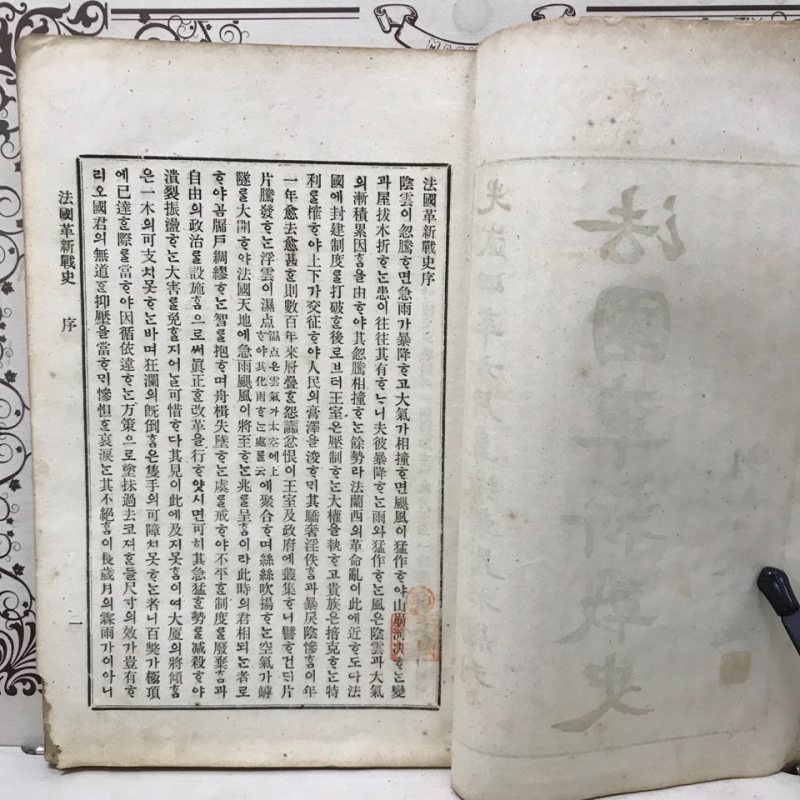 法國革新戰史序
陰雲이忽騰ᄒᆞ면急雨가暴降ᄒᆞ고大氣가相撞ᄒᆞ면颶風이猛作ᄒᆞ야山崩河決ᄒᆞᄂᆞᆫ變
과屋拔木折ᄒᆞᄂᆞᆫ患이往往其有ᄒᆞᄂᆞ니夫彼暴降ᄒᆞᄂᆞᆫ雨와猛作ᄒᆞᄂᆞᆫ風은陰雲과大氣
의漸積累因ᄒᆞᆷ을由ᄒᆞ야其忽騰相撞ᄒᆞᄂᆞᆫ餘勢라法蘭西의革命亂이此에近ᄒᆞ도다法
國에封建制度를打破ᄒᆞᆫ後로브터王室은壓制ᄒᆞᄂᆞᆫ大權을執ᄒᆞ고貴族은掊克ᄒᆞᄂᆞᆫ特
利를搉ᄒᆞ야上下가交征ᄒᆞ야人民의膏澤을浚ᄒᆞᆯᄉᆡ其驕奢淫佚ᄒᆞᆷ과暴戾陰慘ᄒᆞᆷ이年
一年愈去愈甚ᄒᆞᆫ則數百年來層疊ᄒᆞᆫ怨讟忿恨이王室及政府에叢集ᄒᆞ니譬ᄒᆞ건ᄃᆡ片
片騰發ᄒᆞᄂᆞᆫ浮雲이濕点濕点은雲氣가太空에上ᄒᆞ야其化雨ᄒᆞᄂᆞᆫ處를云에聚合ᄒᆞ며絲絲吹揚ᄒᆞᄂᆞᆫ空氣가罅
隧를大開ᄒᆞ야法國天地에急雨颶風이將至ᄒᆞᄂᆞᆫ兆를呈ᄒᆞᆷ이라此時의君相되ᄂᆞᆫ者로
ᄒᆞ야곰牖戶綢繆ᄒᆞᄂᆞᆫ智를抱ᄒᆞ며舟楫失墜ᄒᆞᄂᆞᆫ虞를戒ᄒᆞ야不平ᄒᆞᆫ制度를廢棄ᄒᆞᆷ과
自由의政治를設施ᄒᆞᆷ으로써眞正ᄒᆞᆫ改革을行ᄒᆞ얏시면可히其急猛ᄒᆞᆫ勢를减殺ᄒᆞ야
潰裂振盪ᄒᆞᄂᆞᆫ大害를免ᄒᆞᆯ지어ᄂᆞᆯ可惜ᄒᆞ다其見이此에及지못ᄒᆞᆷ이여大厦의將傾ᄒᆞᆷ
은一木의可支치못ᄒᆞᄂᆞᆫ바며狂瀾의旣倒ᄒᆞᆷ은隻手의可障치못ᄒᆞᄂᆞᆫ者니百獘가極項
에已達ᄒᆞᆫ際를當ᄒᆞ야因循依違ᄒᆞᄂᆞᆫ方策으로塗抹過去코져ᄒᆞᆫ들尺寸의效가豈有ᄒᆞ
리오國君의無道ᄒᆞᆫ抑壓을當ᄒᆞᆯᄉᆡ慘怛ᄒᆞᆫ哀淚ᄂᆞᆫ其不絕ᄒᆞᆷ이長歲月의霖雨가이아니
法國革新戰史 序
一